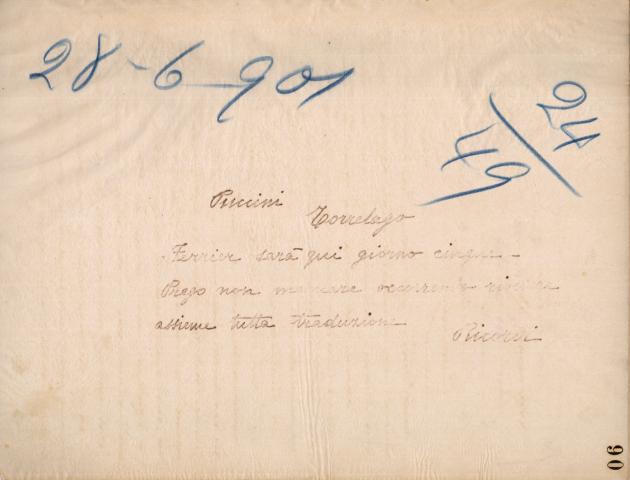 28-6-901
24/49
Puccini
Torrelago
Ferrier sarà qui giorno cinque -
Prego non mancare occorrendo rivedere
assieme tutta traduzione
Ricordi
06